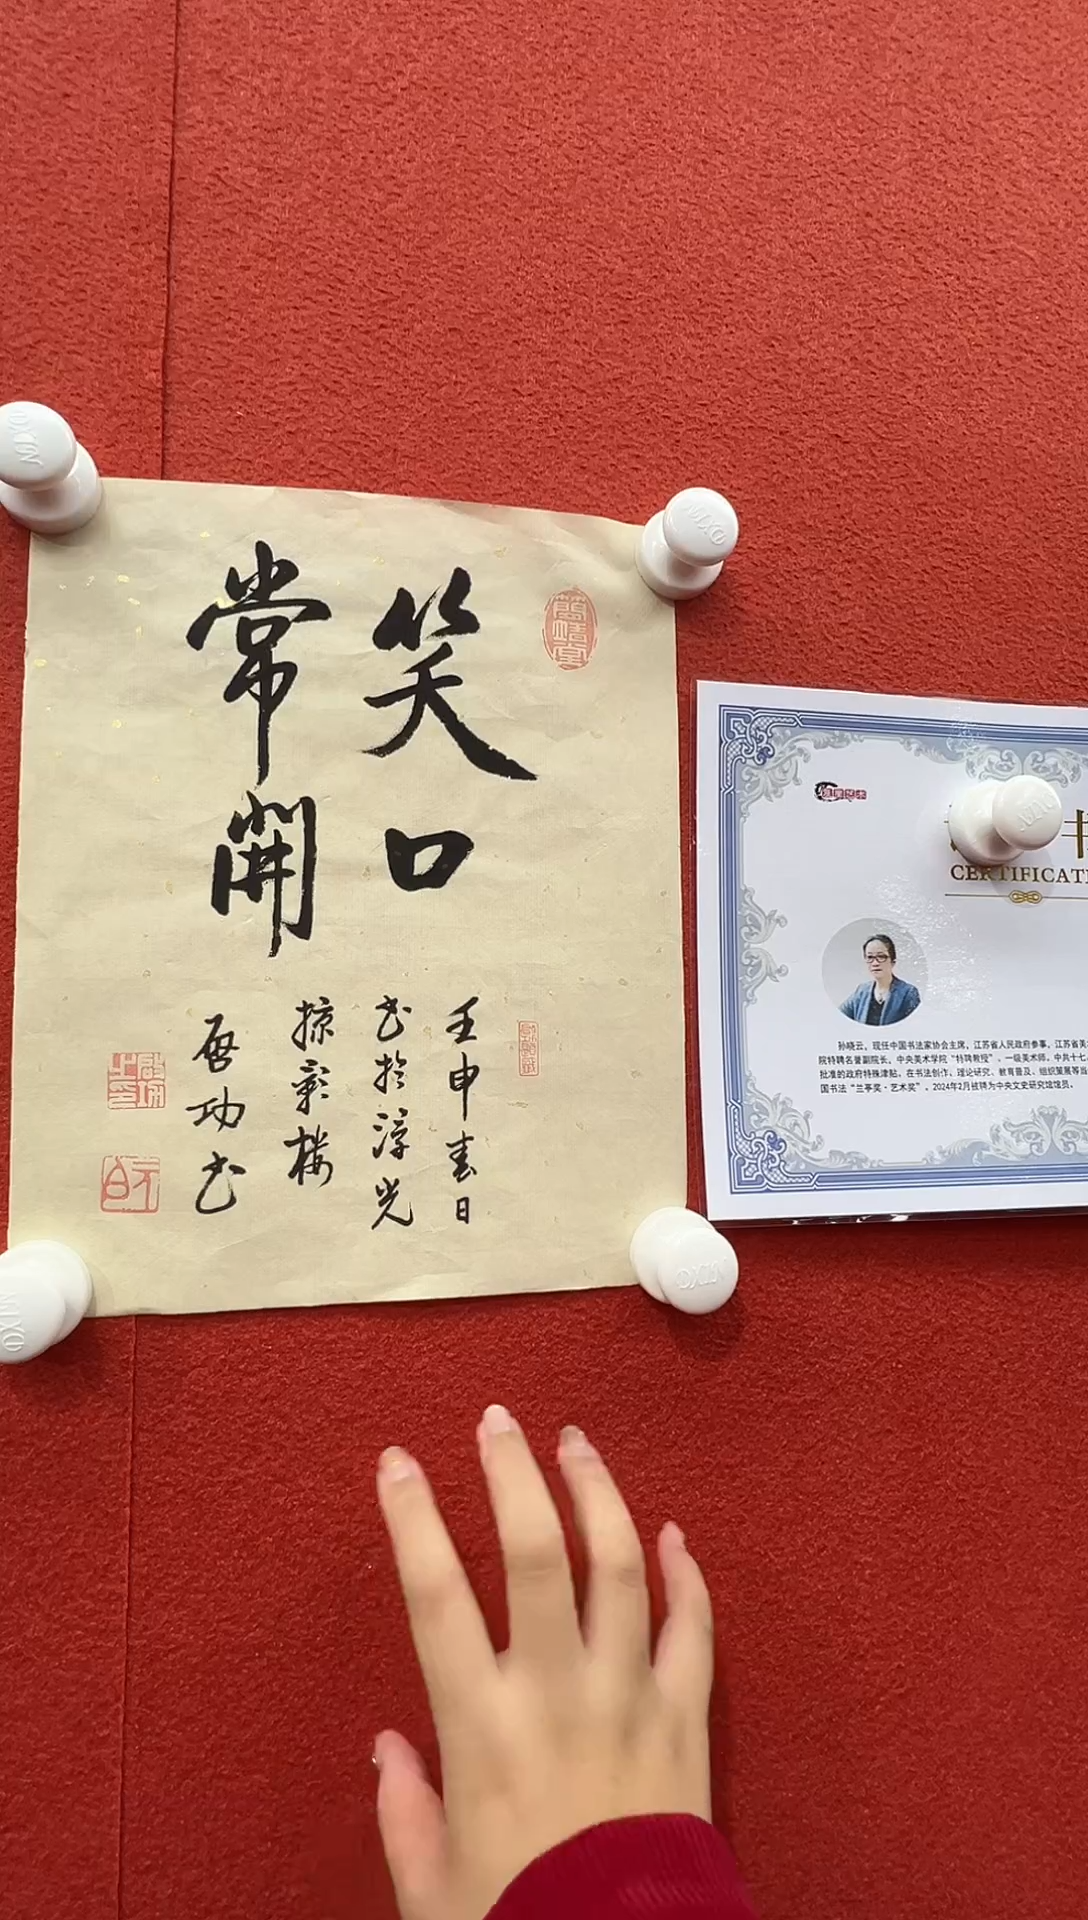 笑口
常開
壬申春日
书於浮光
掠影楼
启功书
启功
之印
元白
CERTIFICAT
孙晓云，现任中国书法家协会主席，江苏省人民政府参事，江苏省美
院特聘名誉副院长，中央美术学院“特聘教授”，一级美术师，中共十七、
批准的政府特殊津贴，在书法创作、理论研究、教育普及、组织策展等当
国书法“兰亭奖·艺术奖”。2024年2月被聘为中央文史研究馆馆员。